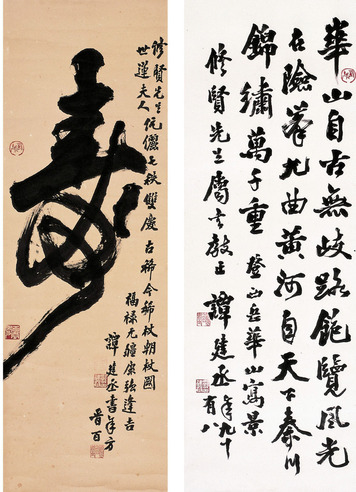 壽
修賢先生伉儷七秩雙慶古稀今稀杖朝杖國
世蓮夫人
福祿无疆康強逢吉
譚建丞書年方
晋百
華山自古無歧路飽覽風光
在險峯九曲黃河自天下秦川
錦繡萬千重登山至華山寫景
修賢先生屬書教正譚建丞年九十
有八